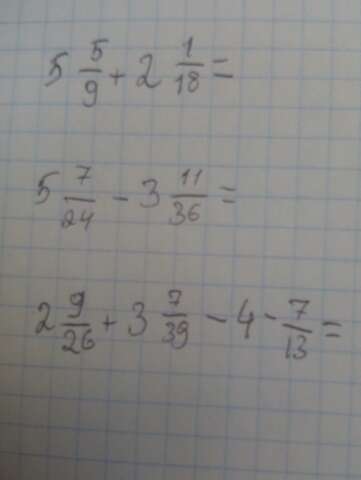 5 5/9 + 2 1/18 =
5 7/24 - 3 11/36 =
2 9/26 + 3 7/39 - 4 - 7/13 =